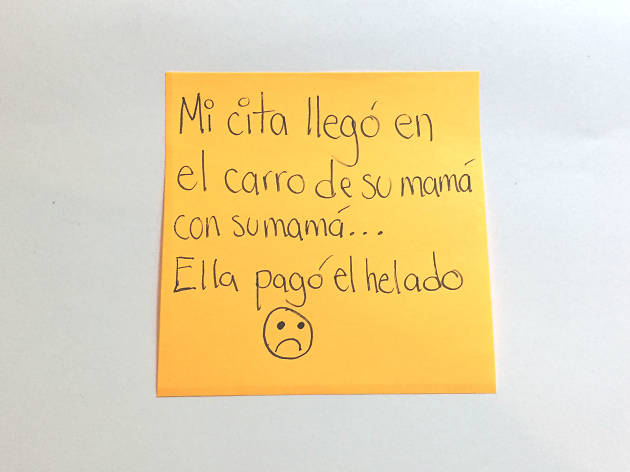 Mi cita llegó en
el carro de su mamá
con su mamá...
Ella pagó el helado